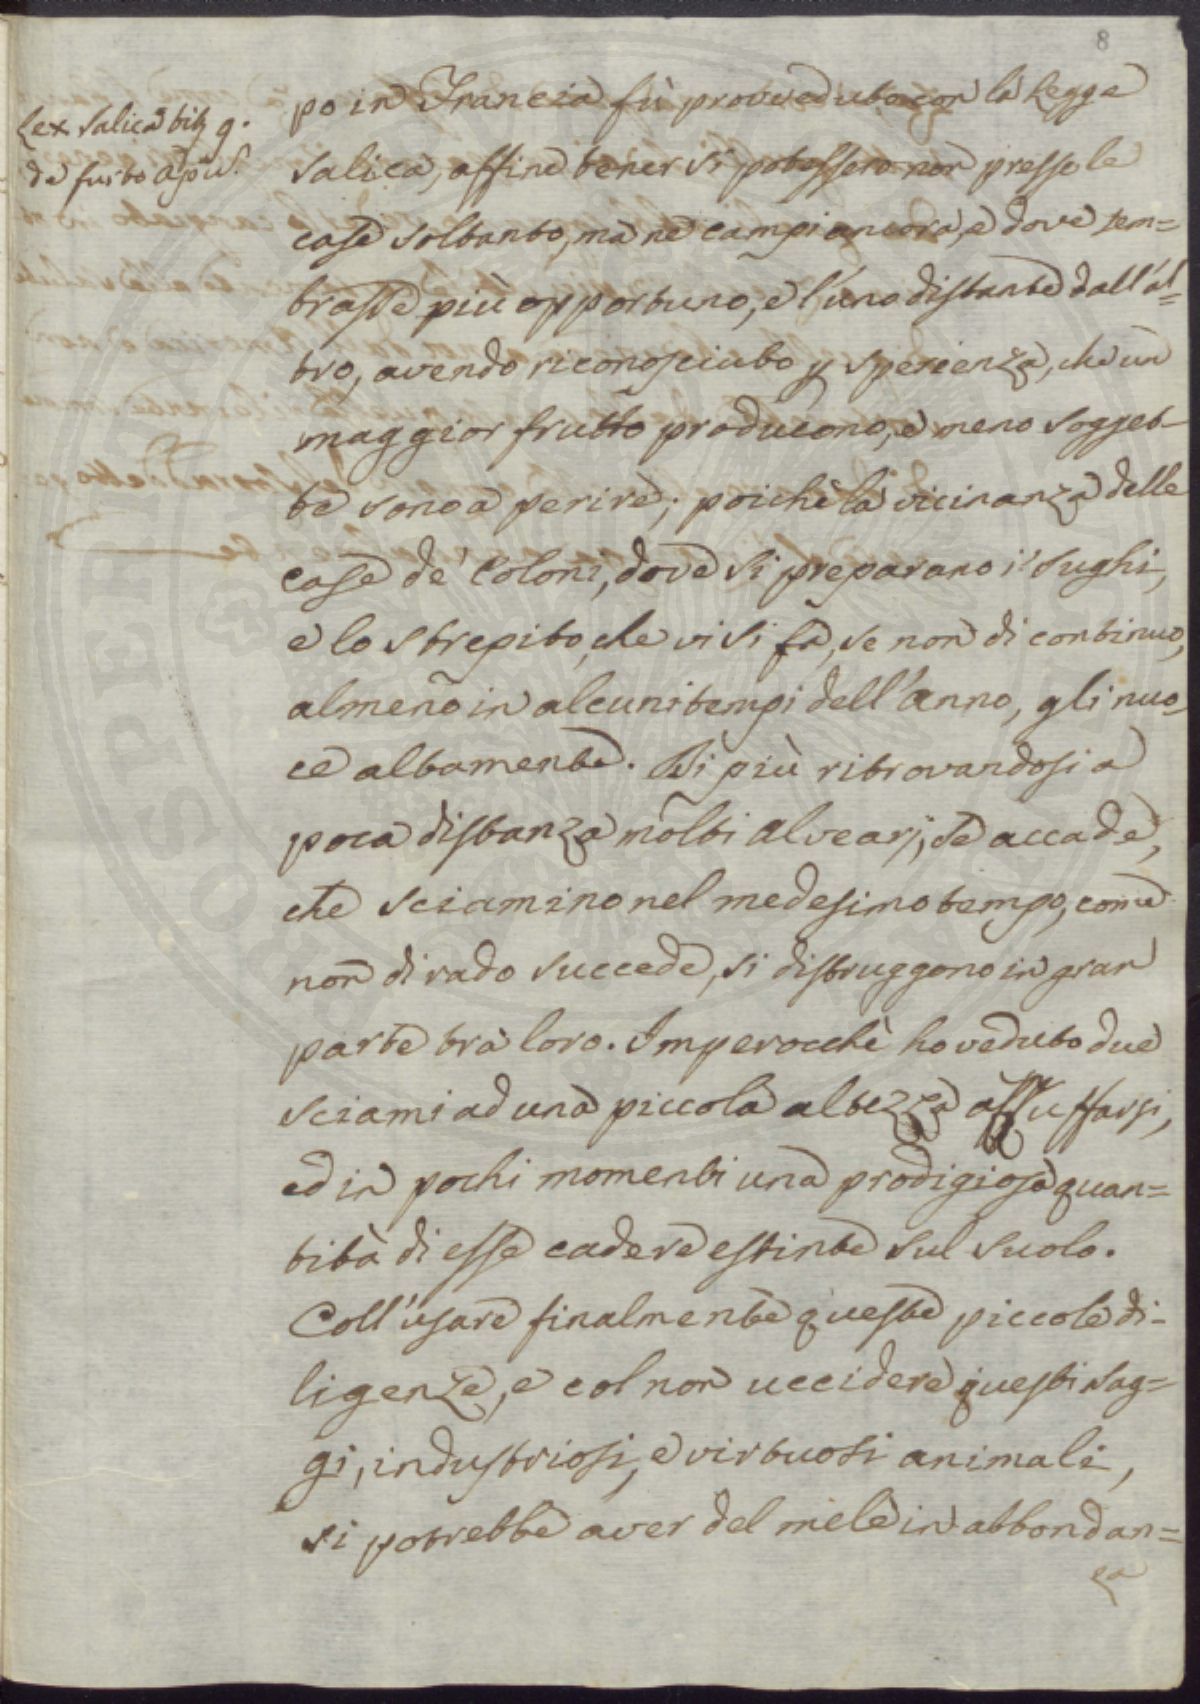 8
Lex Salica tit. 9.
de furto apu͞.
po in Francia fù provveduto con la Legge
Salica, affine tener si potessero non presso le
case soltanto, ma ne campi ancora, e dove sem=
brasse più opportuno, e l'uno distante dall'al=
tro, avendo riconosciuto p sperienza, che un
maggior frutto producono, e meno sogget-
te sono a perire; poichè la vicinanza delle
case de' Coloni, dove si preparano i sughi,
e lo strepito, che vi si fà, se non di continuo,
almeno in alcuni tempi dell'anno, gli nuo-
ce altamente. Di più ritrovandosi a
poca distanza molti alvearj, se accade,
che sciamino nel medesimo tempo, come
non di rado succede, si distruggono in gran
parte trà loro. Imperocchè ho veduto due
sciami ad una piccola altezza azzuffarsi,
ed in pochi momenti una prodigiosa quan=
tità di esse cadere estinte sul suolo.
Coll'usare finalmente queste piccole di-
ligenze, e col non uccidere questi sag=
gi, industriosi, e virtuosi animali,
si potrebbe aver del mele in abbondan=
za
PROSPERITATI